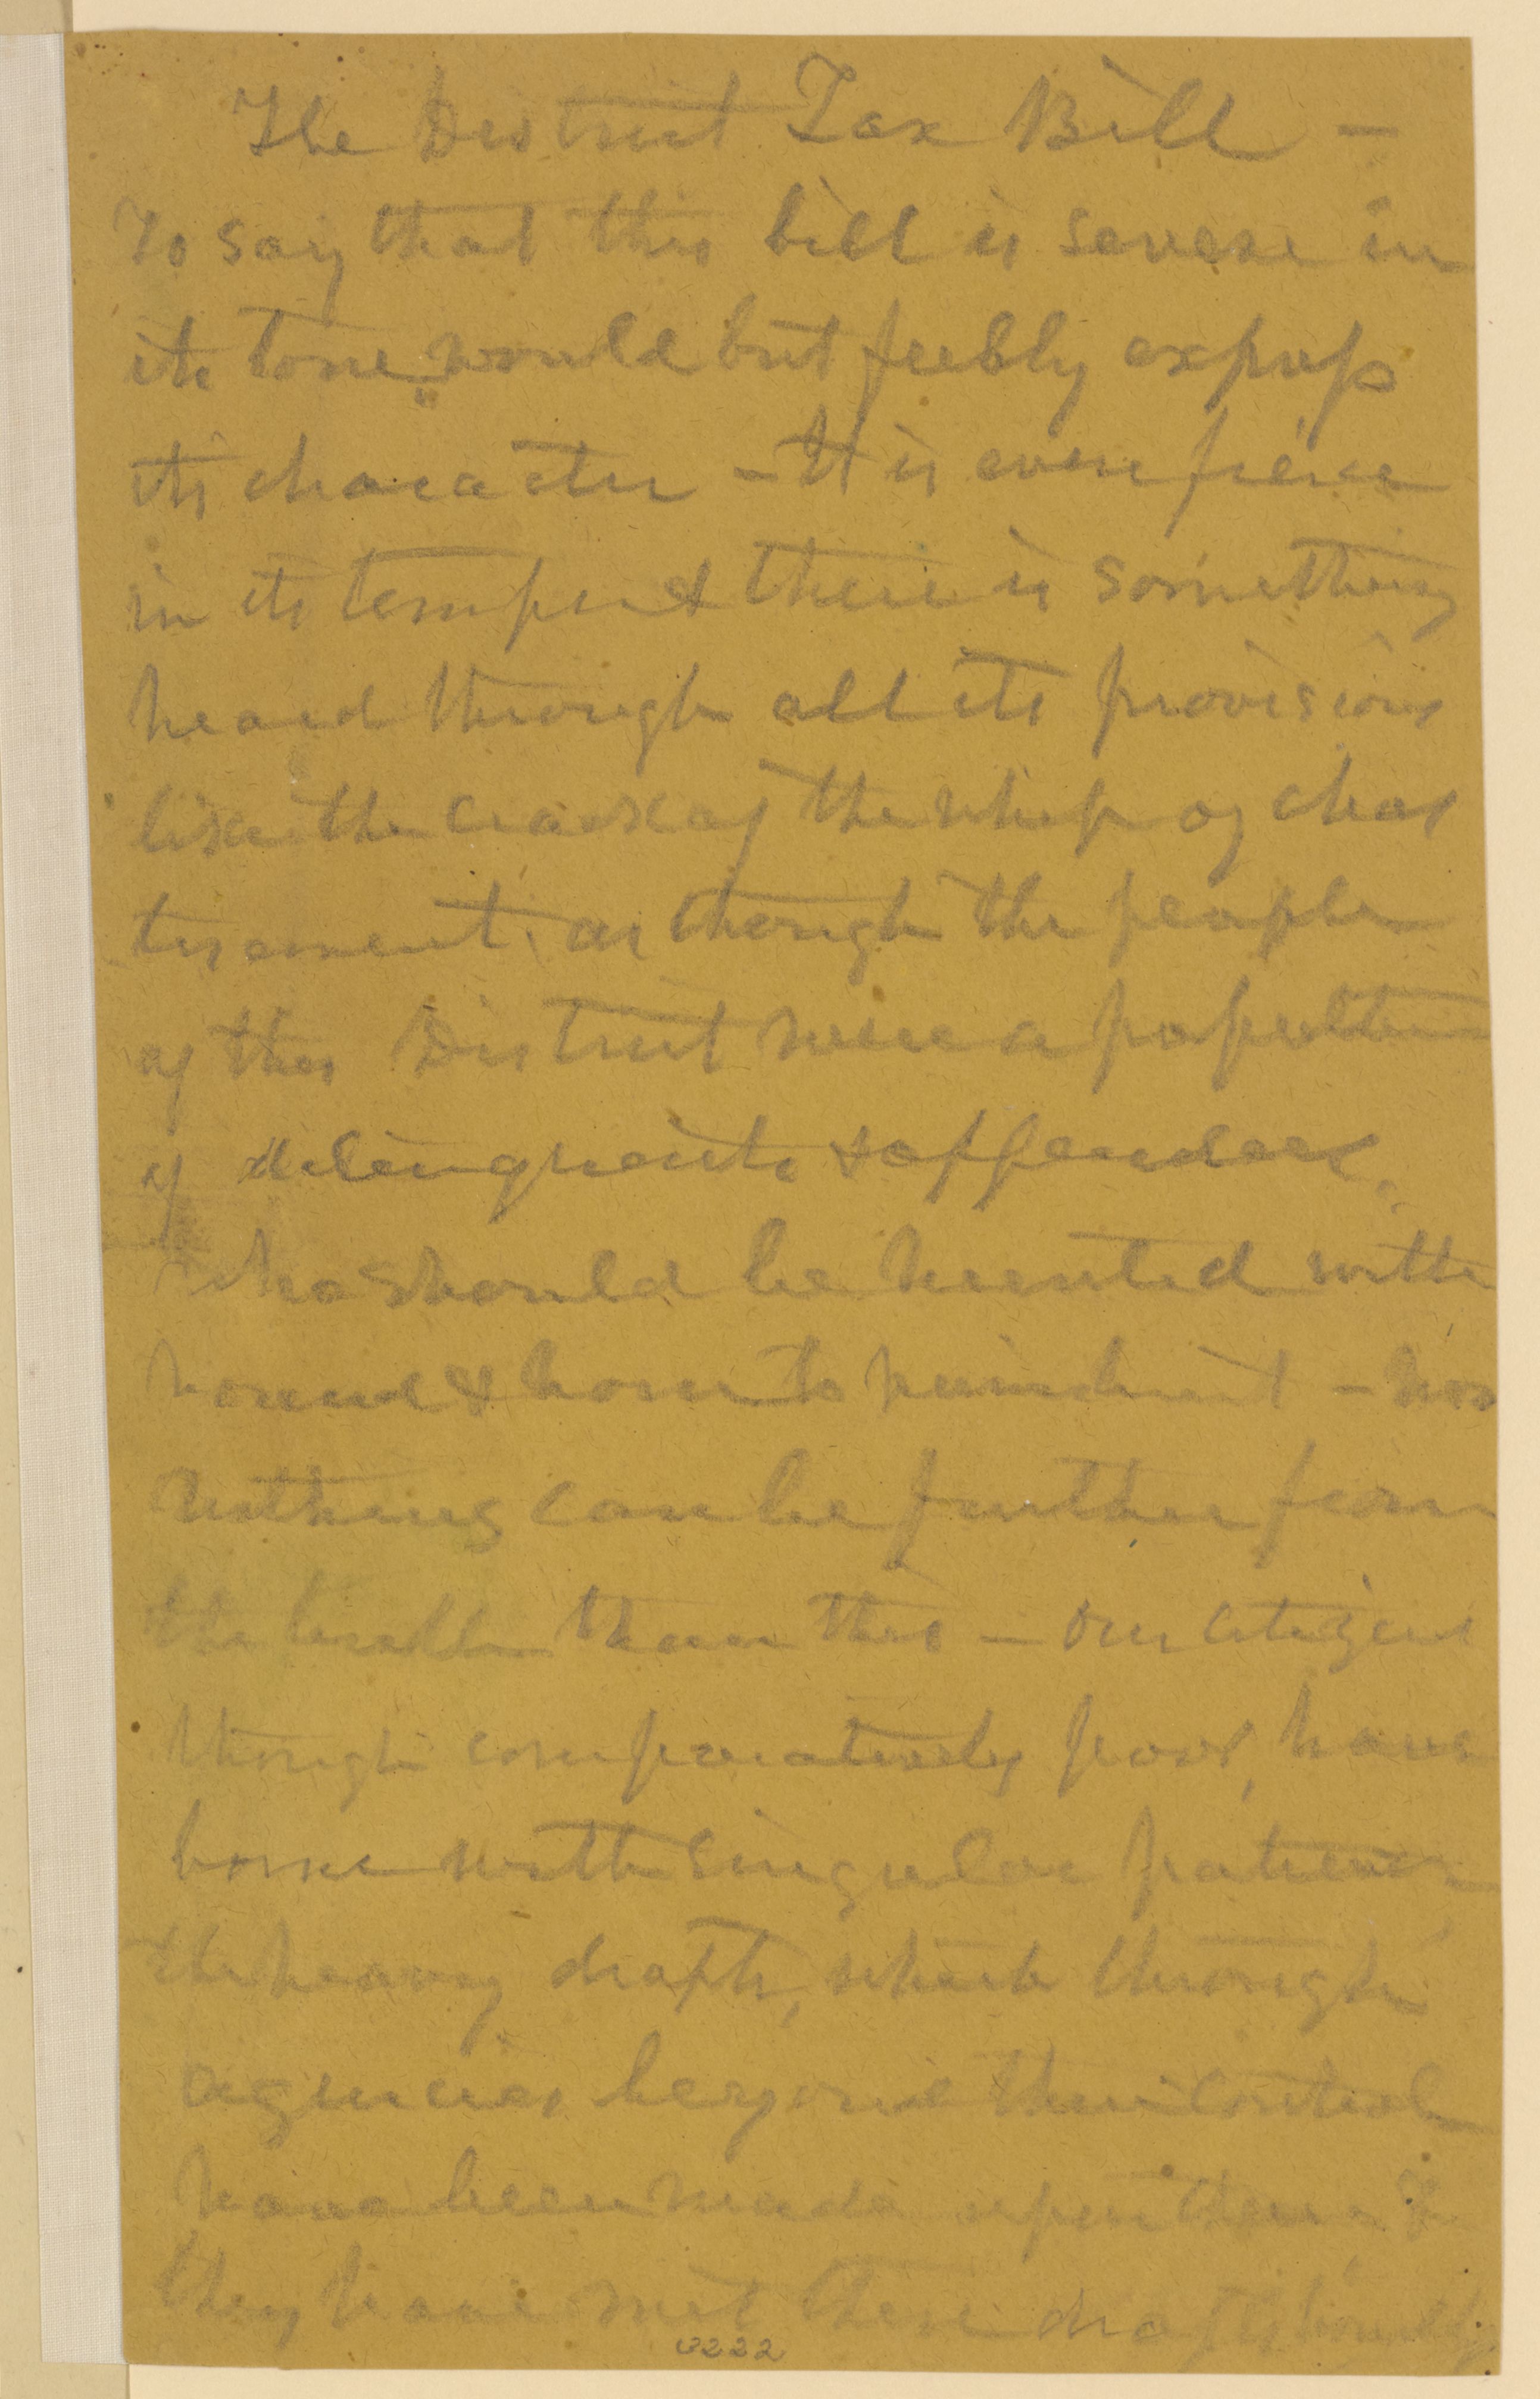 The District Tax Bill —
To say that this bill is severe in
its tone, would but feebly express
its character – It is even fierce
in its temper & there is something
heard through all its provisions
like the crack of the whip of chas
tisement, as though the people
of this District were a population
of delinquents & offenders,
who should be hunted with
hound & horn to punishment – now
nothing can be further from
the truth than this – Our citizens
though comparatively poor, have
borne with singular patience,
the heavy drafts, which through
agencies beyond their control
have been made upon them –
they have met these drafts
3222